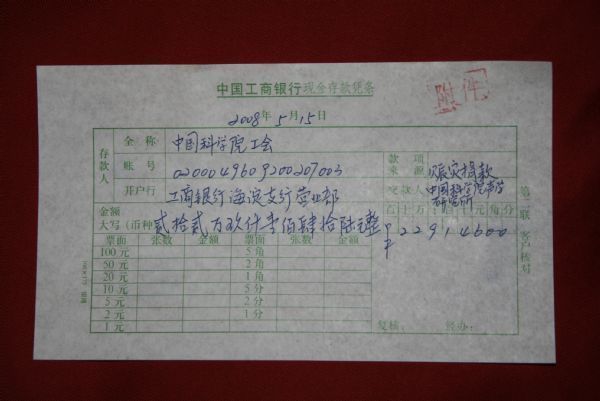 中国工商银行现金存款凭条
附件
2008年5月15日
存款人
全称 中国科学院工会
账号 0200049609200207003
款项来源 赈灾捐款
开户行 工商银行海淀支行营业部
交款人 中国科学院声学研究所
金额大写（币种） 贰拾贰万玖仟壹佰肆拾陆元整
百十万千百十元角分
22914600
票面 张数 金额 票面 张数 金额
100元 5角
50元 2角
20元 1角
10元 5分
5元 2分
2元 1分
1元
复核： 经办：
第二联 客户核对